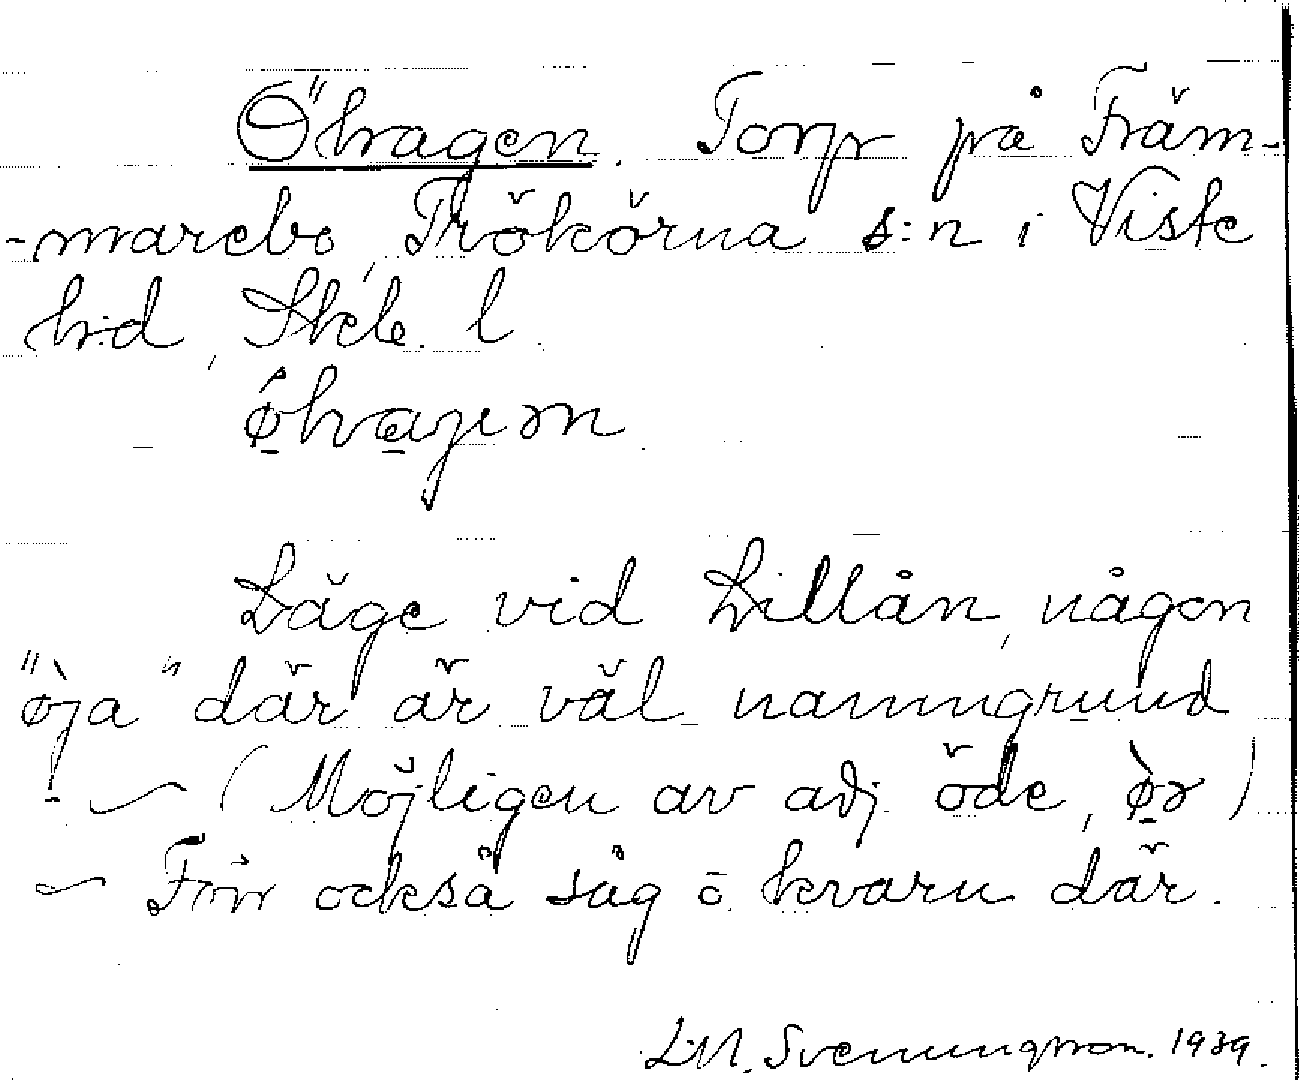 Öhagen. Torp på Främ-
-marebo, Trökörna s:n i Viste
h:d, Skb. l.
Läge vid Lillån, någon
"ø̀ja" där är väl namngrund
! ~ (Möjligen av adj. öde, ø̀ə)
~ Förr också såg ō kvarn där.
L.M. Svenungsson. 1939.